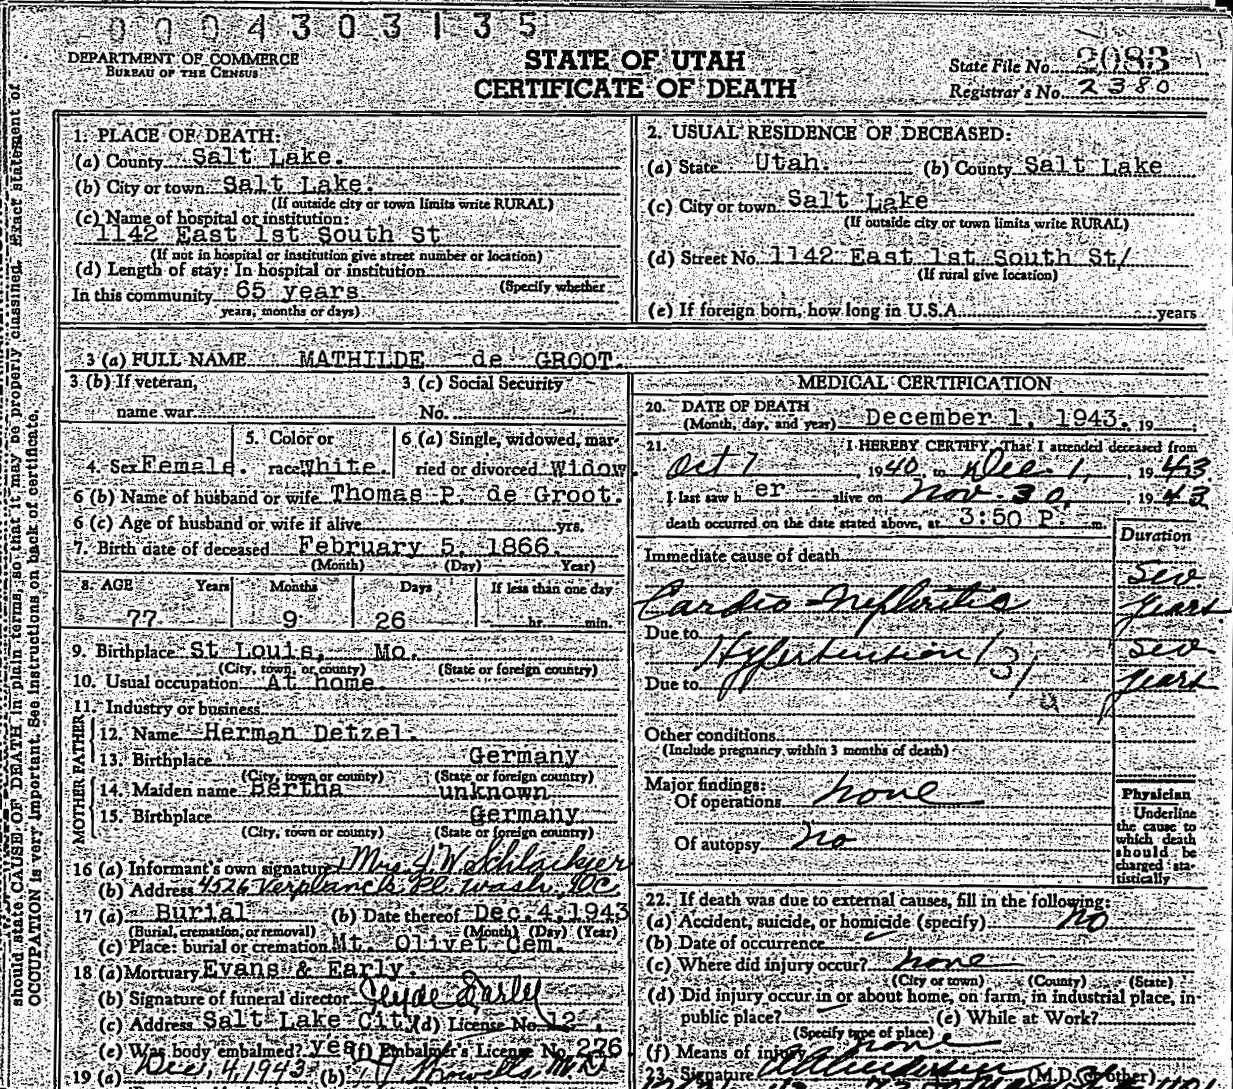 0004303135
DEPARTMENT OF COMMERCE
BUREAU OF THE CENSUS
STATE OF UTAH
CERTIFICATE OF DEATH
State File No. 2083
Registrar's No. 2380
should state CAUSE OF DEATH in plain terms, so that it may be properly classified. Exact statement of
OCCUPATION is very important. See instructions on back of certificate.
1. PLACE OF DEATH:
(a) County Salt Lake.
(b) City or town Salt Lake.
(If outside city or town limits write RURAL)
(c) Name of hospital or institution:
1142 East 1st South St
(If not in hospital or institution give street number or location)
(d) Length of stay: In hospital or institution
(Specify whether
In this community 65 years
years, months or days)
2. USUAL RESIDENCE OF DECEASED:
(a) State Utah. (b) County Salt Lake
(c) City or town Salt Lake
(If outside city or town limits write RURAL)
(d) Street No. 1142 East 1st South St/
(If rural give location)
(e) If foreign born, how long in U.S.A. years
3 (a) FULL NAME MATHILDE de GROOT.
3 (b) If veteran,
name war
3 (c) Social Security
No.
4. Sex Female.
5. Color or
race White.
6 (a) Single, widowed, mar-
ried or divorced Widow.
6 (b) Name of husband or wife Thomas P. de Groot.
6 (c) Age of husband or wife if alive yrs.
7. Birth date of deceased February 5, 1866.
(Month) (Day) Year)
8. AGE Years Months Days If less than one day
77 9 26 hr. min.
9. Birthplace St Louis, Mo.
(City, town, or county) (State or foreign country)
10. Usual occupation At home.
11. Industry or business
FATHER
12. Name Herman Detzel.
13. Birthplace Germany
(City, town or county) (State or foreign country)
MOTHER
14. Maiden name Bertha unknown
15. Birthplace Germany
(City, town or county) (State or foreign country)
16 (a) Informant's own signature Mrs J. W. Schlaikjer
(b) Address 4526 Verplanck Pl. Wash. DC.
17 (a) Burial (b) Date thereof Dec. 4, 1943
(Burial, cremation, or removal) (Month) (Day) (Year)
(c) Place: burial or cremation Mt. Olivet Cem.
18 (a) Mortuary Evans & Early.
(b) Signature of funeral director Clyde Early
(c) Address Salt Lake City (d) License No. 12
(e) Was body embalmed? yes (f) Embalmer's License No. 276
19 (a) Dec, 4, 1943 (b) M.D.
MEDICAL CERTIFICATION
20. DATE OF DEATH
(Month, day, and year) December 1, 1943. 19
21. I HEREBY CERTIFY, That I attended deceased from
Oct 7, 1940, to Dec. 1, 1943
I last saw h er alive on Nov. 30, 1943
death occurred on the date stated above, at 3:50 P. m.
Duration
Immediate cause of death
Cardio-Nephritis
sev
years
Due to Hypertension
sev
years
131
Due to
Other conditions
(Include pregnancy within 3 months of death)
Major findings:
Of operations none
Of autopsy no
Physician
Underline
the cause to
which death
should be
charged sta-
tistically
22. If death was due to external causes, fill in the following:
(a) Accident, suicide, or homicide (specify) no
(b) Date of occurrence
(c) Where did injury occur? none
(City or town) (County) (State)
(d) Did injury occur in or about home, on farm, in industrial place, in
public place? (e) While at Work?
(Specify type of place)
(f) Means of injury none
23. Signature (M.D. or other)